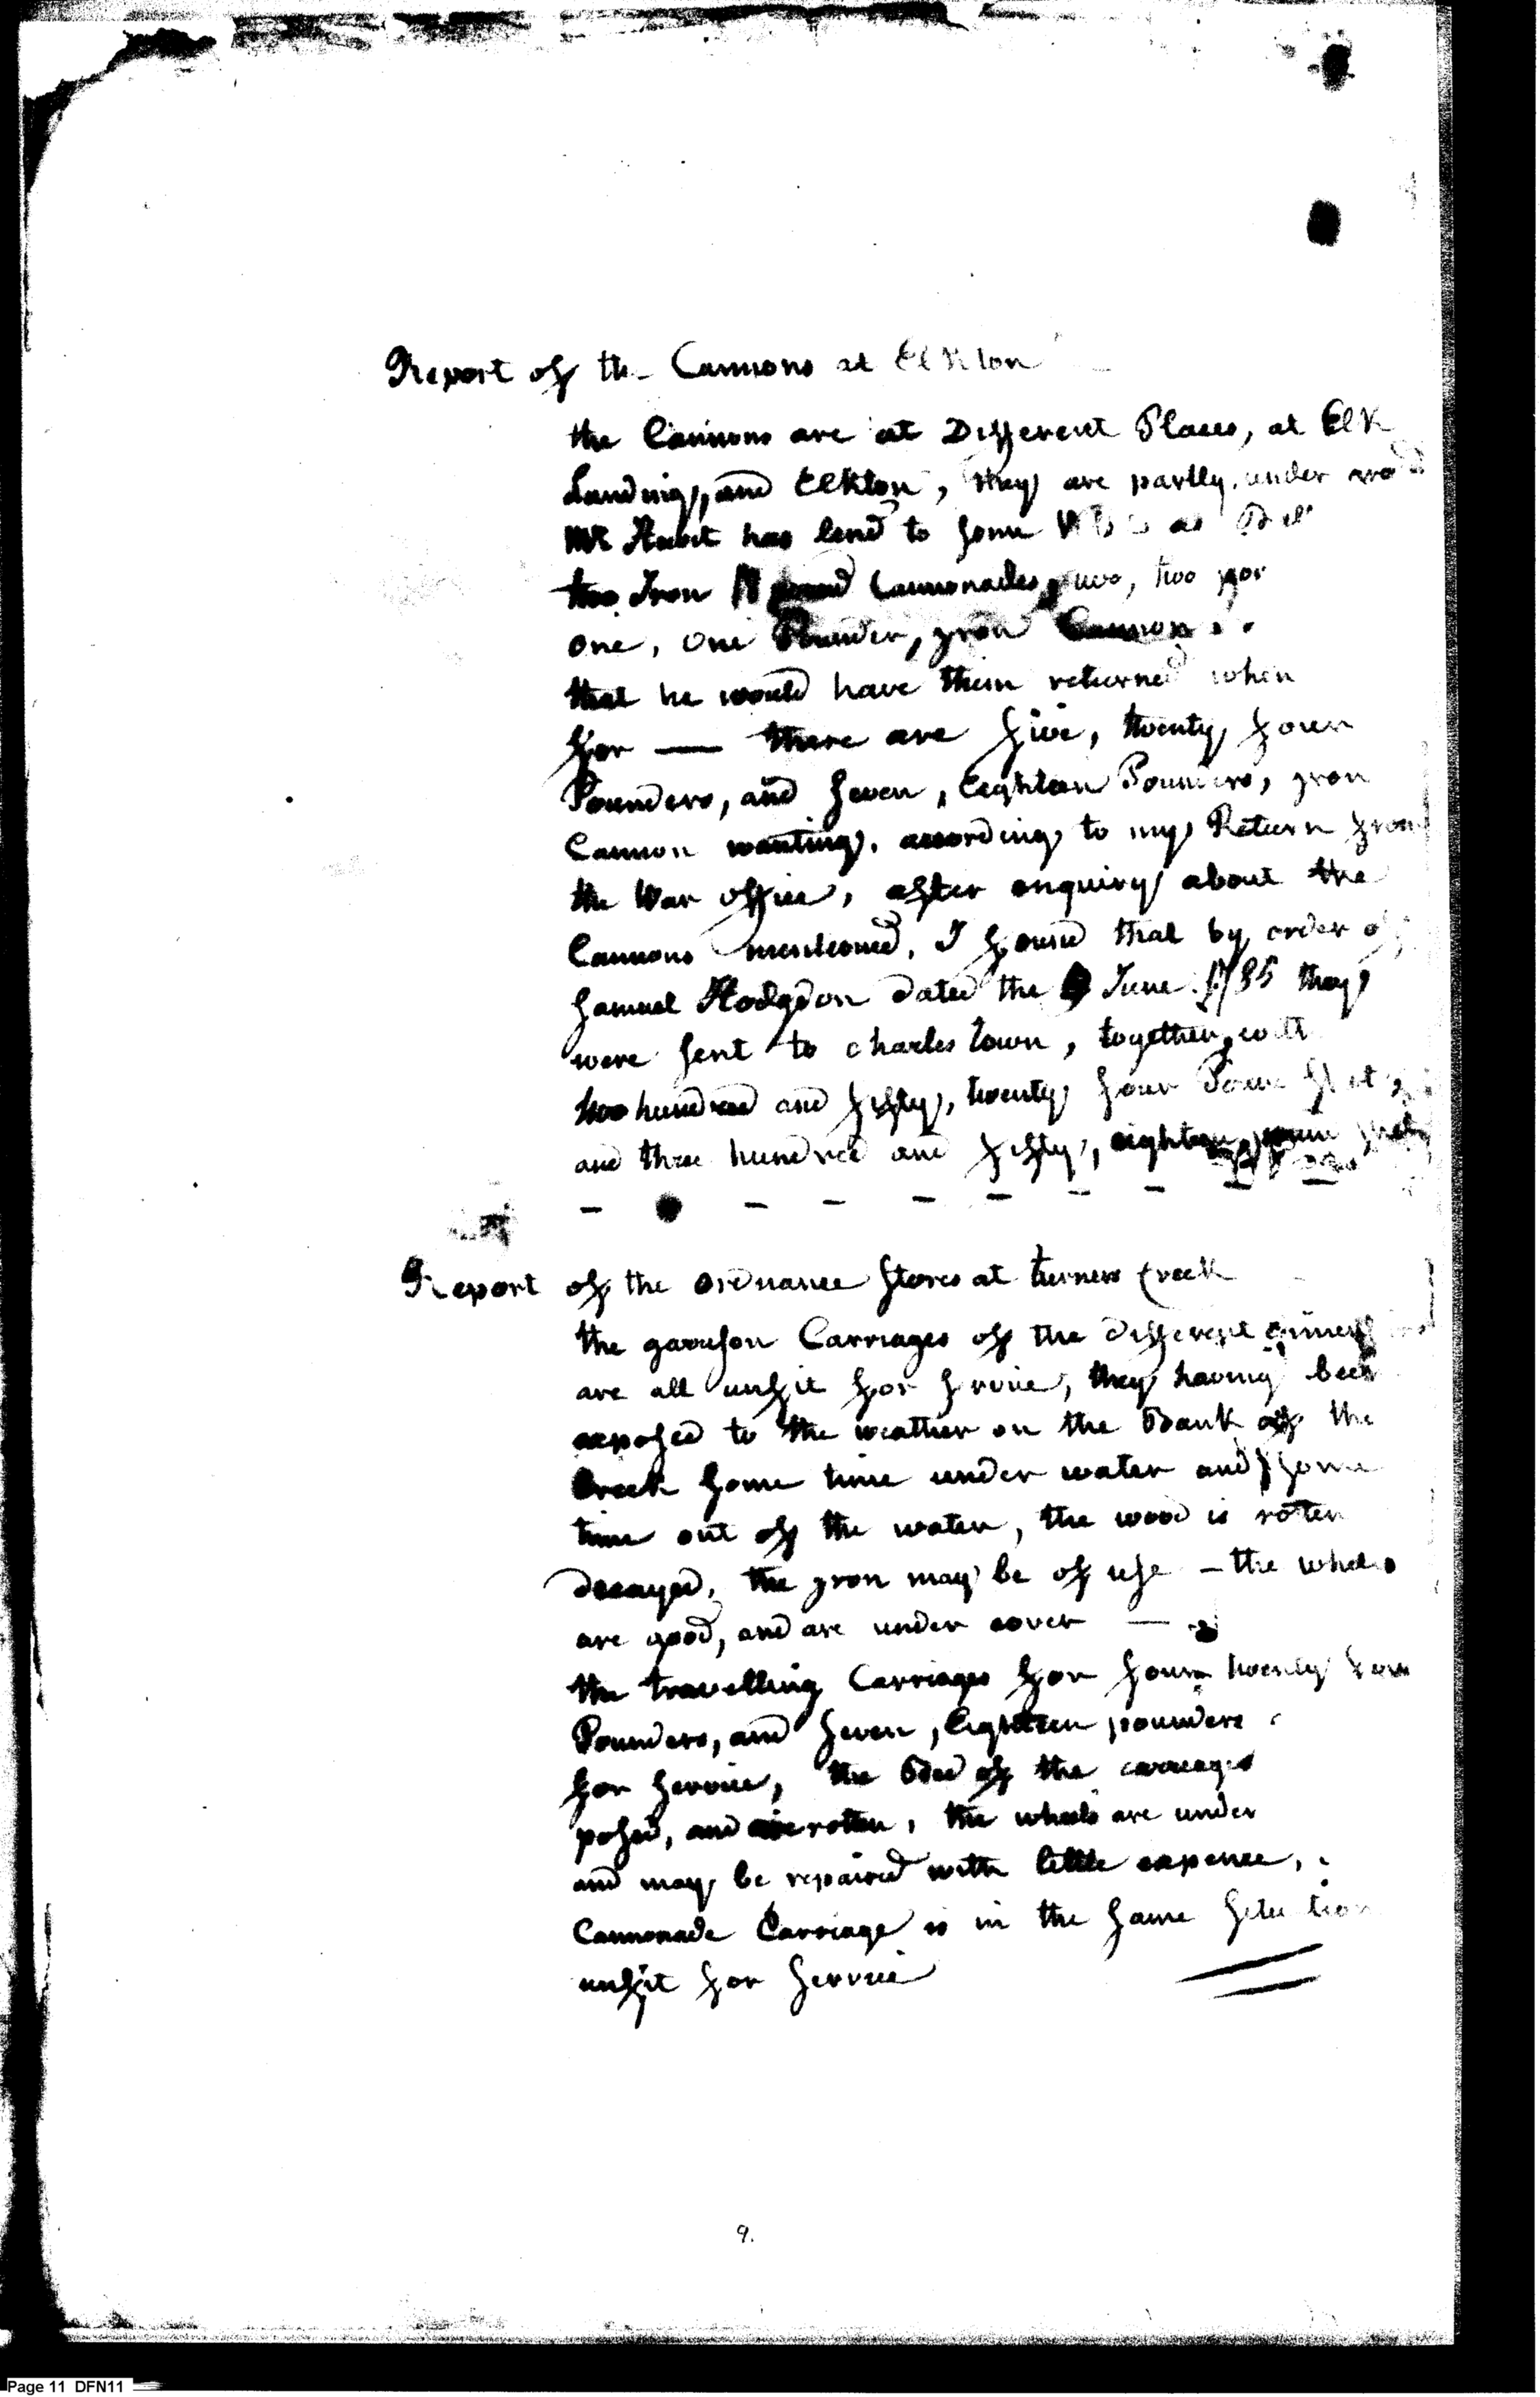 Report of the Cannons at Elkton
the Cannons are at Different Places, at Elk
Landing, and Elkton, they are partly under
Mr Hubit has lend to some as
two Iron Cannonades, two, two
one, one Pounder, yron Cannon
that he would have them returned when
for — there are five, twenty four
Pounders, and seven, Eighteen Pounders, yron
Cannon wanting, according to my Return from
the War office, after enquiry about the
Cannons mentioned, I found that by order of
Samuel Hodgdon dated the June 1785 they
were sent to charles town, together with
two hundred and fifty, twenty four
and three hundred and fifty, eighteen
Report of the Ordnance stores at turners Creek
the garrison Carriages of the different
are all unfit for service, they having been
exposed to the weather on the Bank of the
Creek some time under water and some
time out of the water, the wood is roten
decayed, the yron may be of use – the wheels
are good, and are under cover —
the travelling Carriages for four twenty four
Pounders, and seven, Eighteen pounders
for service, the Bed of the carriages
posed, and are roten, the wheels are under
and may be repaired with little expence,
Cannonade Carriage is in the same situation
unfit for service
9.
Page 11 DFN11